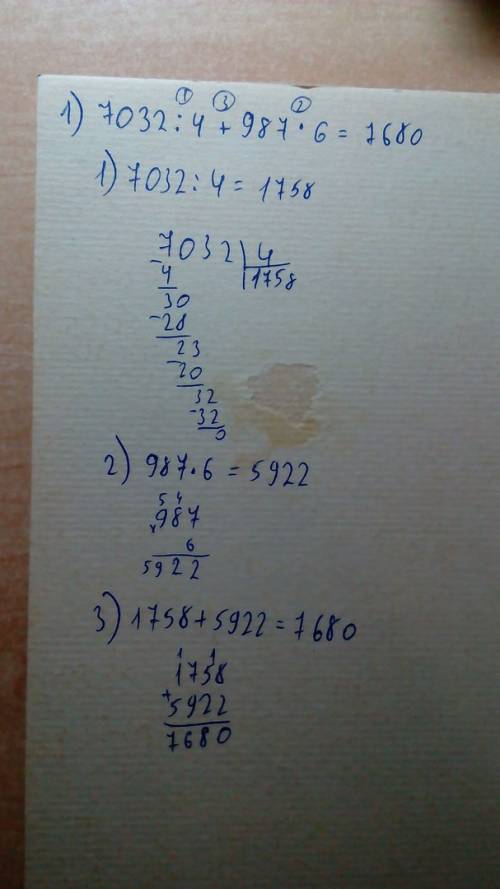 ① ③ ②
1) 7032 : 4 + 987 · 6 = 7680
1) 7032 : 4 = 1758
7032 | 4
- 4 | 1758
30
- 28
23
- 20
32
- 32
0
2) 987 · 6 = 5922
5 4
× 987
6
5922
3) 1758 + 5922 = 7680
1 1
1758
+ 5922
7680